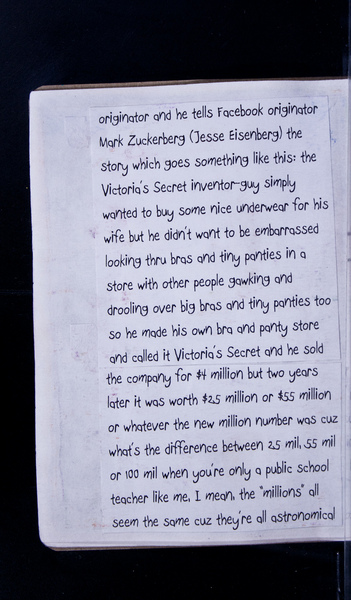 originator and he tells Facebook originator
Mark Zuckerberg (Jesse Eisenberg) the
story which goes something like this: the
Victoria's Secret inventor-guy simply
wanted to buy some nice underwear for his
wife but he didn't want to be embarrassed
looking thru bras and tiny panties in a
store with other people gawking and
drooling over big bras and tiny panties too
so he made his own bra and panty store
and called it Victoria's Secret and he sold
the company for $4 million but two years
later it was worth $25 million or $55 million
or whatever the new million number was cuz
what's the difference between 25 mil, 55 mil
or 100 mil when you're only a public school
teacher like me, I mean, the "millions" all
seem the same cuz they're all astronomical